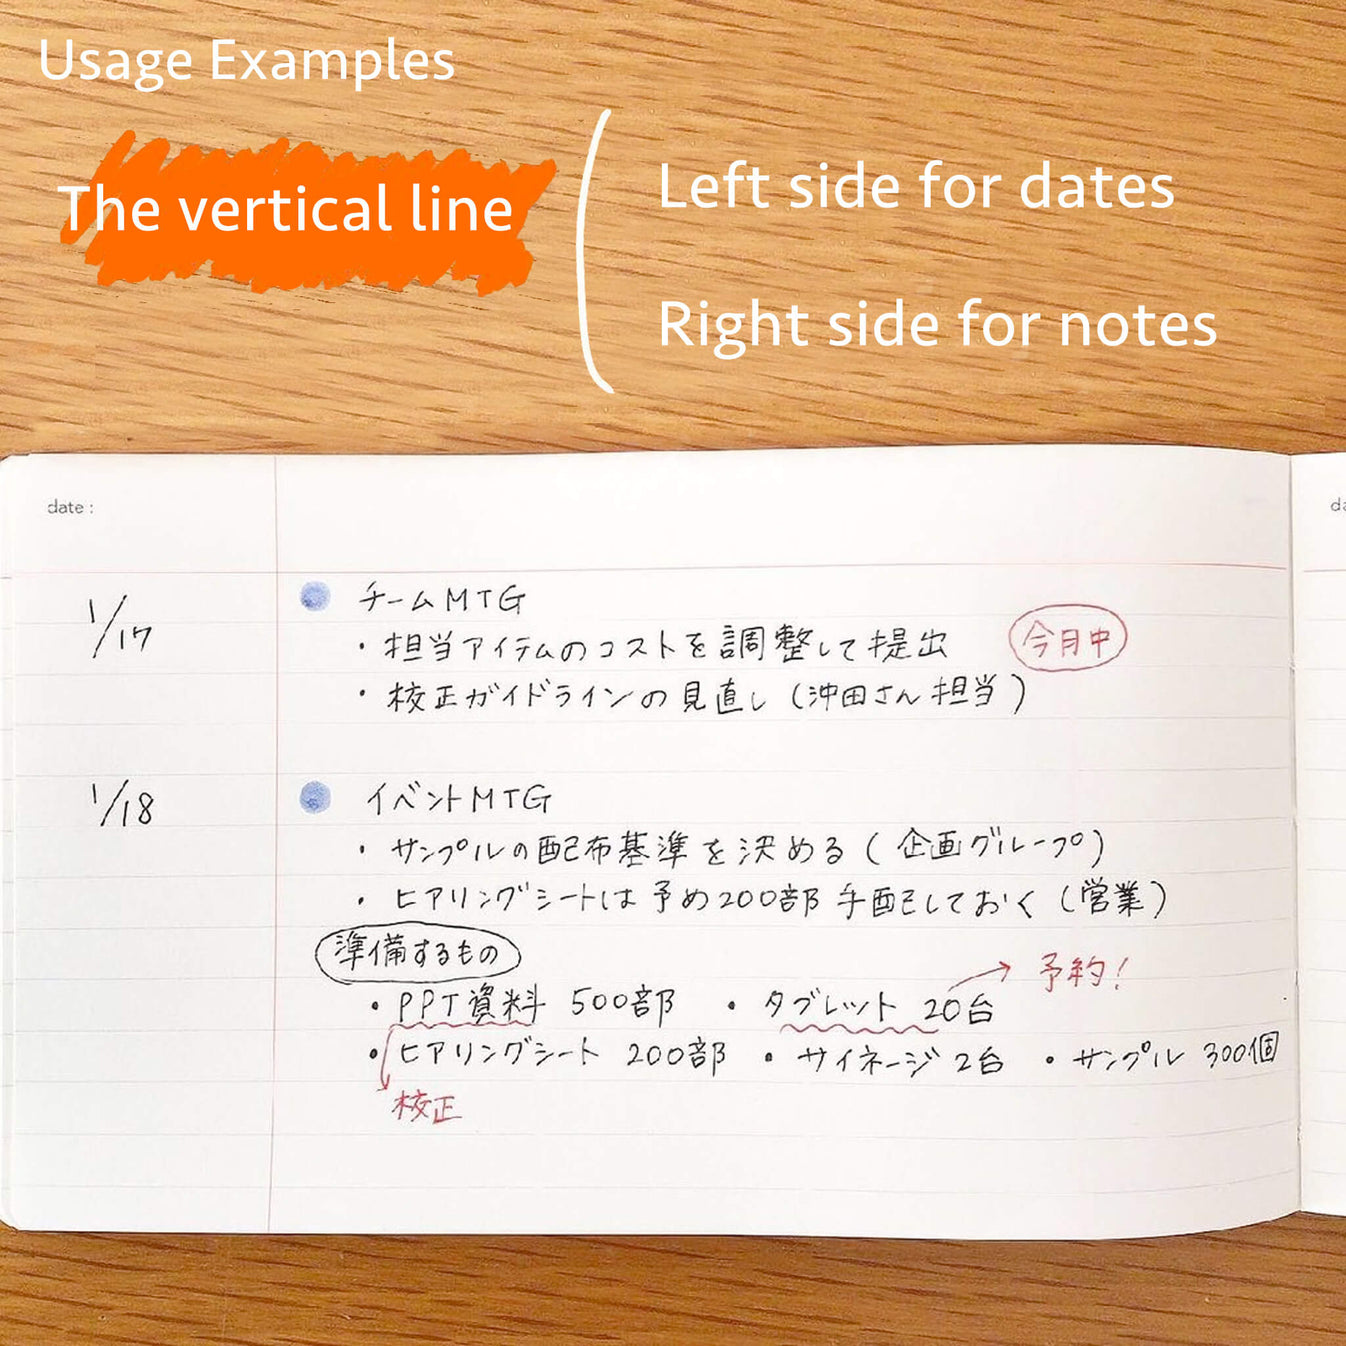 Usage Examples
The vertical line
Left side for dates
Right side for notes
date :
1/17
● チームMTG
・担当アイテムのコストを調整して提出 今月中
・校正ガイドラインの見直し(沖田さん担当)
1/18
● イベントMTG
・サンプルの配布基準を決める(企画グループ)
・ヒアリングシートは予め200部手配しておく(営業)
準備するもの
→ 予約!
・PPT資料 500部 ・タブレット 20台
・ヒアリングシート 200部 ・サイネージ2台 ・サンプル 300個
校正